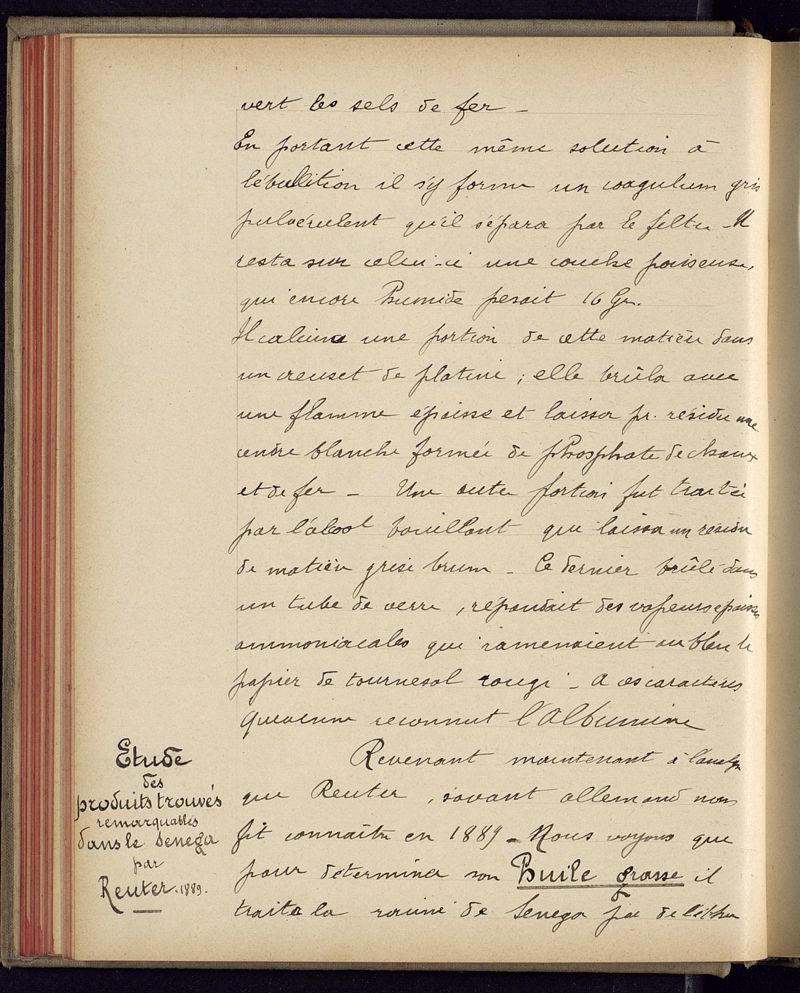 vert les sels de fer -
En portant cette même solution à
l'ébullition il s'y forme un coagulum gris
pulvérulent qu'il sépara par le filtre - Il
resta sur celui-ci une couche poisseuse,
qui encore humide pesait 16 Gr.
Il calcina une portion de cette matière dans
un creuset de platine ; elle brûla avec
une flamme épaisse et laissa pr. résidu une
cendre blanche formée de phosphate de chaux
et de fer - Une autre portion fut traitée
par l'alcool bouillant qui laissa un résidu
de matière grise brune - Ce dernier brûlé dans
un tube de verre, répandait des vapeurs épaisses
ammoniacales qui ramenaient au bleu le
papier de tournesol rougi - A ces caractères
Quevenne reconnut l'Albumine
Revenant maintenant à l'analyse
que Reuter, savant allemand nous
fit connaître en 1889 - Nous voyons que
pour déterminer son Huile grasse il
traita la racine de Senega par de l'éther
Etude
des
produits trouvés
remarquables
dans le Senega
par
Reuter. 1889.